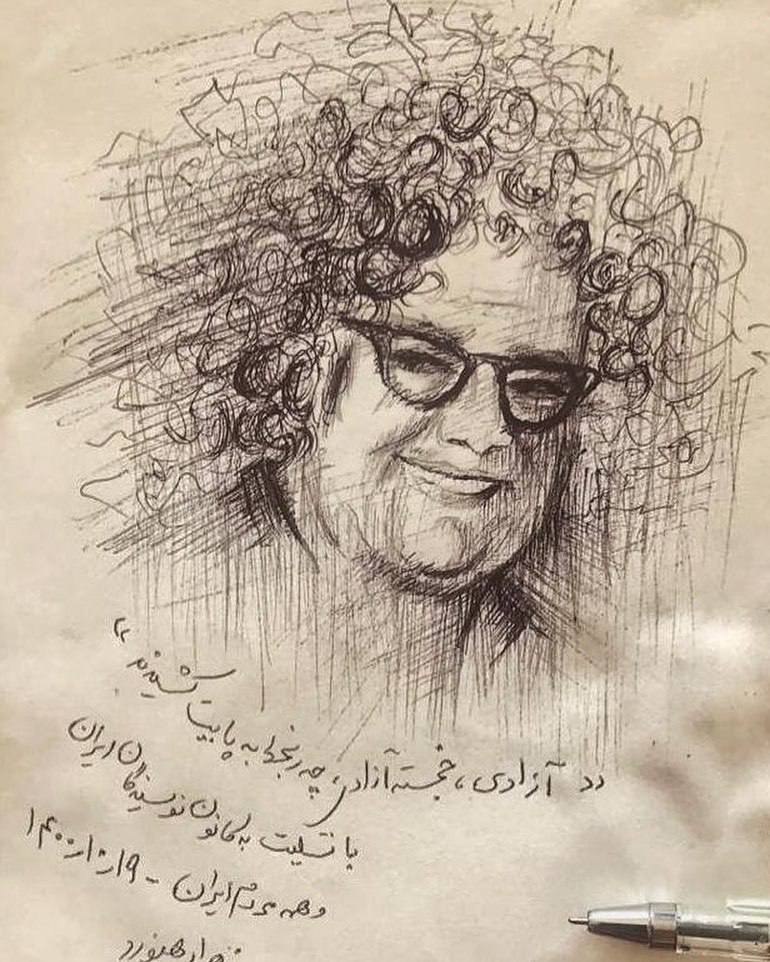 «آزادی، خجسته آزادی، چه رنجها به پایت کشیدند»
با تسلیت به کانون نویسندگان ایران
و همه مردم ایران - ۱۴۰۰/۱۰/۱۹